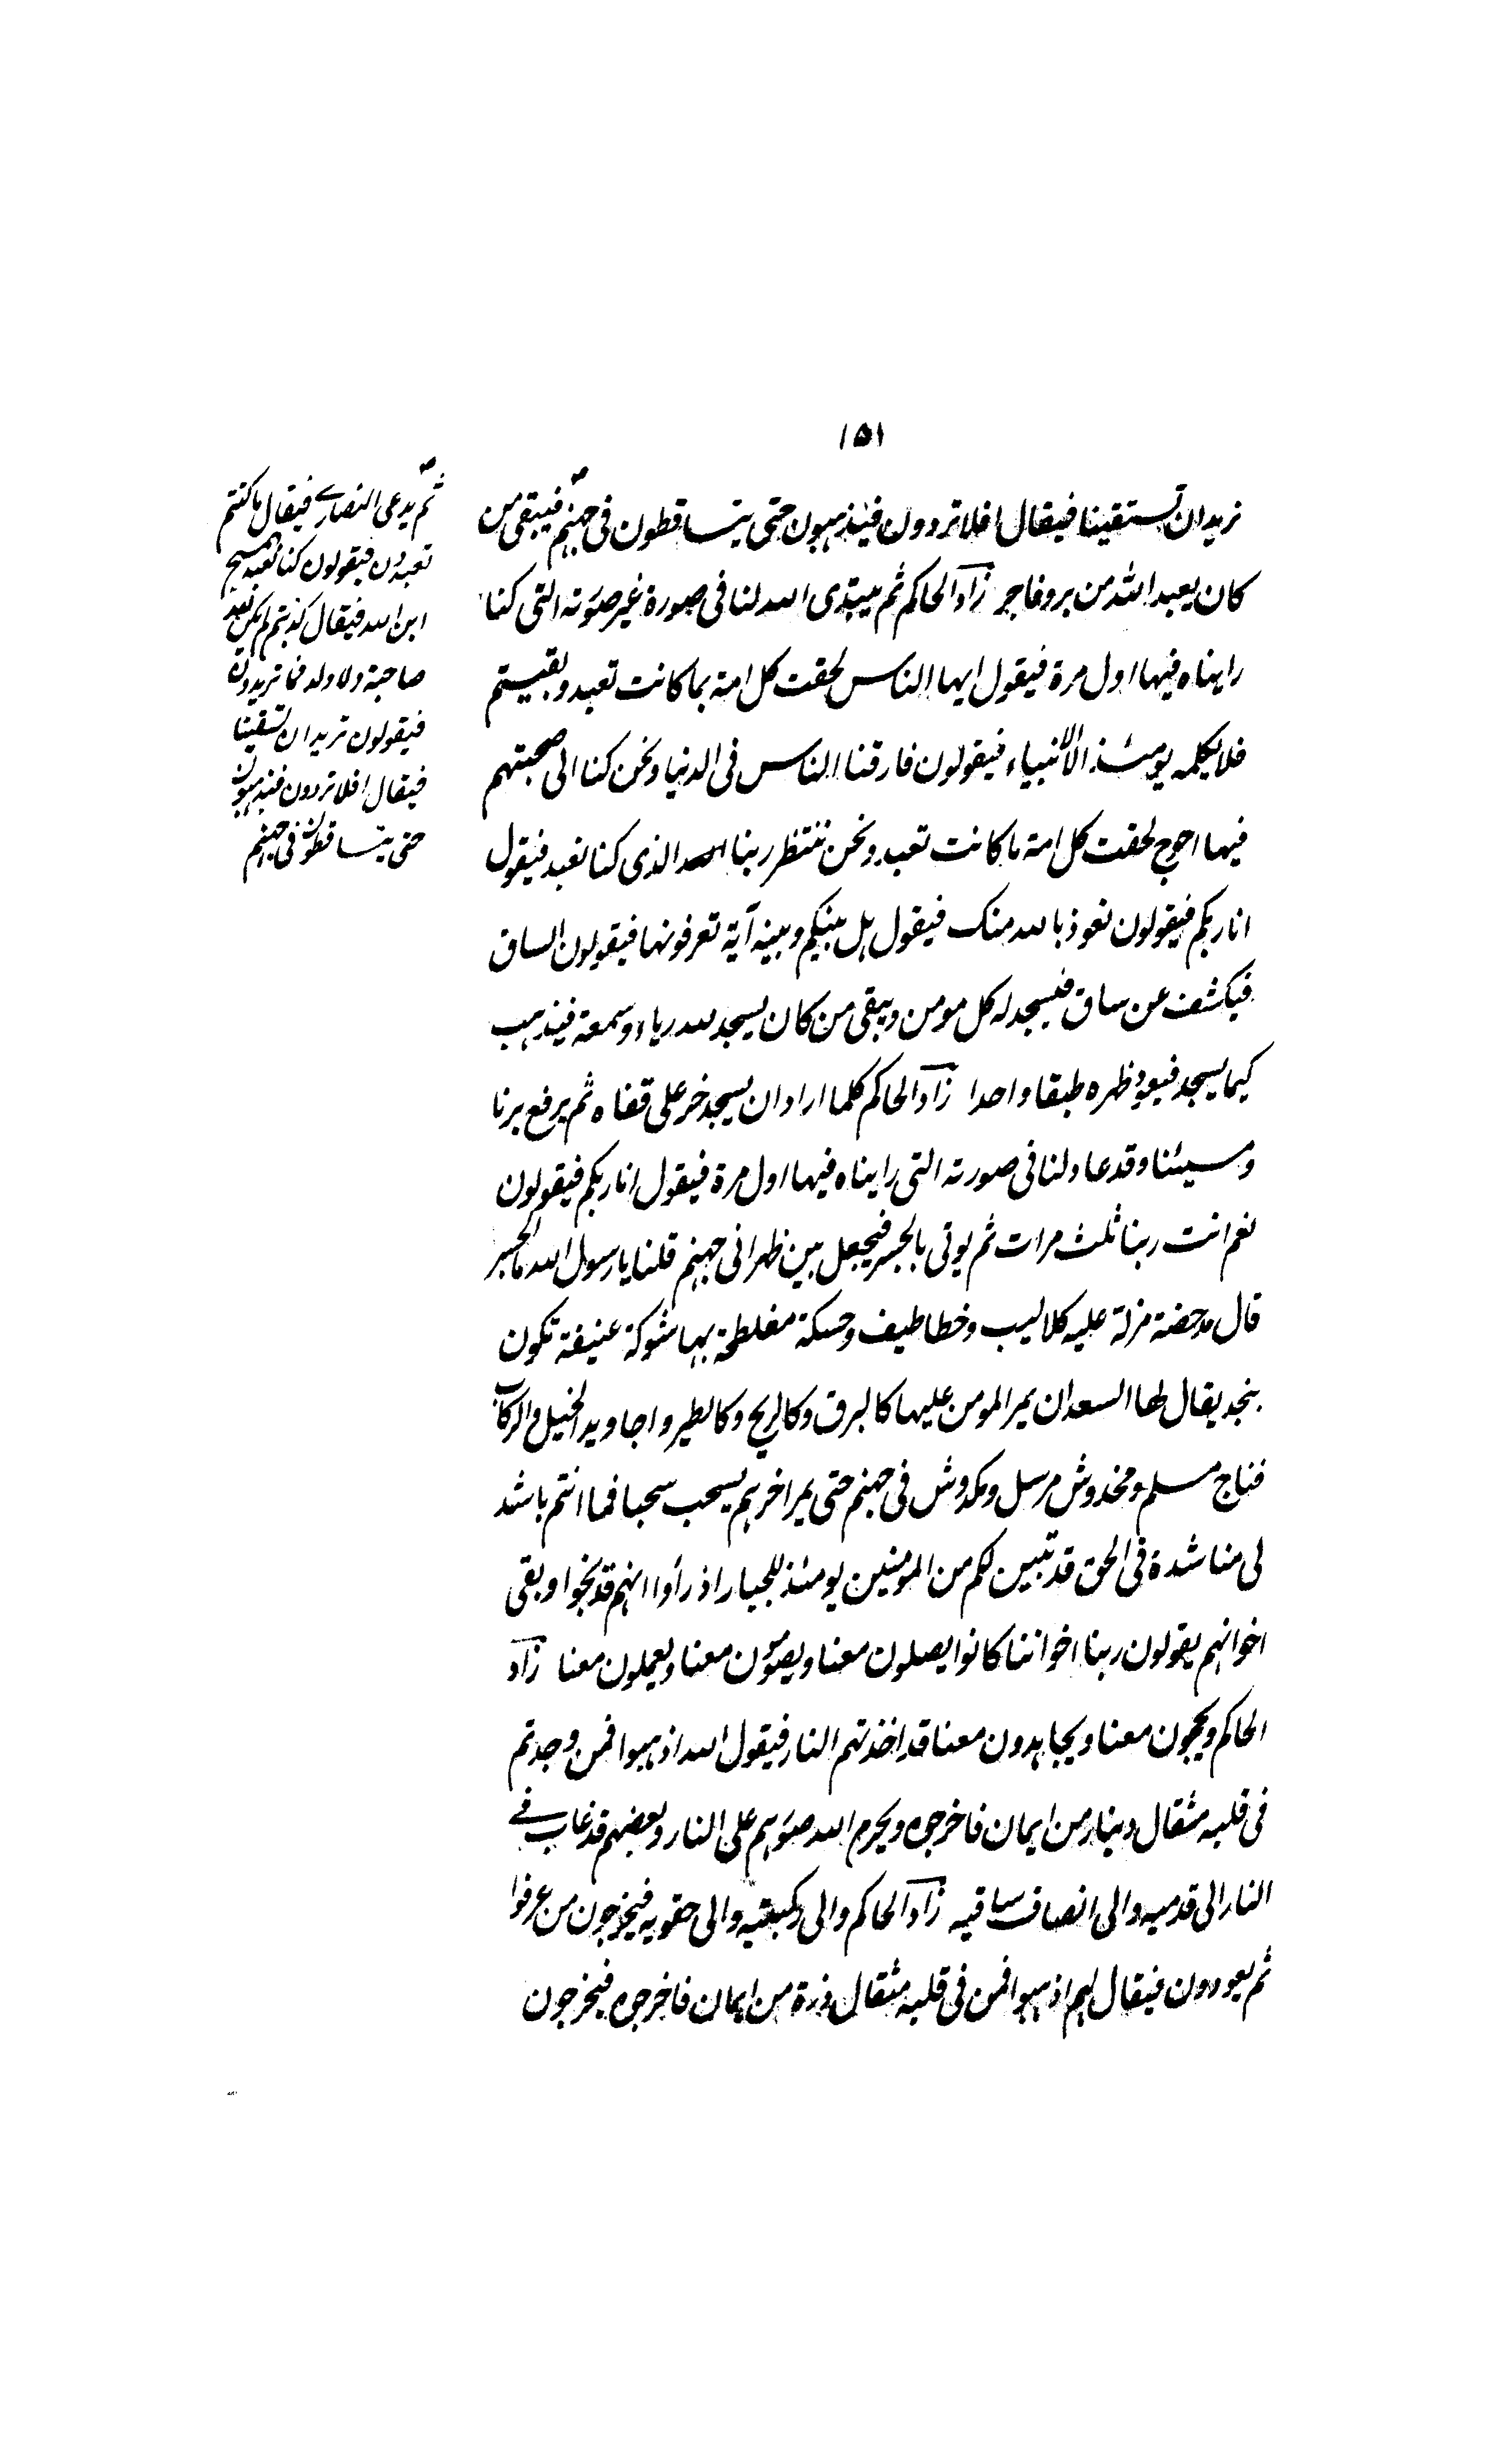 ١٥١
نريد ان تستقينا فيقال افلا تردون فيذهبون حتى يتساقطون فى جهنم ص فيبقى من
كان يعبد الله من بر وفاجر زاد الحاكم ثم يبتدى الله لنا فى صورة غير صورته التى كنا
رايناه فيها اول مرة فيقول ايها الناس لحقت كل امة بما كانت تعبد وبقيتم
فلا يكلمه يومئذ الا الانبياء فيقولون فارقنا الناس فى الدنيا ونحن كنا الى صحبتهم
فيها احوج لحقت كل امة ما كانت تعبد ونحن ننتظر ربنا الله الذى كنا نعبد فيقول
انا ربكم فيقولون نعوذ بالله منك فيقول هل بينكم وبينه آية تعرفونها فيقولون الساق
فيكشف عن ساق فيسجد له كل مومن ويبقى من كان يسجد لله رياء وسمعة فيذهب
كيما يسجد فيعود ظهره طبقا واحدا زاد الحاكم كلما اراد ان يسجد خر على قفاه ثم يرفع برنا
ومسيئنا وقد عاد لنا فى صورته التى رايناه فيها اول مرة فيقول انا ربكم فيقولون
نعم انت ربنا ثلث مرات ثم يوتى بالجسر فيجعل بين ظهرانى جهنم قلنا يا رسول الله ما الجسر
قال مدحضة مزلة عليه كلاليب وخطاطيف وحسكة مفلطحة بها شوكة عنيفة تكون
بنجد يقال لها السعدان يمر المومن عليها كالبرق وكالريح وكالطير واجاويد الخيل والركاب
فناج مسلم ومخدوش مرسل ومكدوش فى جهنم حتى يمر اخرهم يسحب سحبا فما انتم باشد
لى مناشدة فى الحق قد تبين لكم من المومنين يومئذ للجبار اذ رأوا انهم قد نجوا وبقى
اخوانهم يقولون ربنا اخواننا كانوا يصلون معنا ويصومون معنا ويعملون معنا زاد
الحاكم ويحجون معنا ويجاهدون معنا قد اخذتهم النار فيقول الله اذهبوا فمن وجدتم
فى قلبه مثقال دينار من ايمان فاخرجوه ويحرم الله صورهم على النار وبعضهم قد غاب فے
النار الى قدميه والى انصاف ساقيه زاد الحاكم والى ركبتيه والى حقويه فيخرجون من عرفوا
ثم يعودون فيقال لهم اذهبوا فمن فى قلبه مثقال ذرة من ايمان فاخرجوه فيخرجون
ص
ثم يدعى النصارے فيقال ما كنتم
تعبدون فيقولون كنا نعبد المسيح
ابن الله فيقال كذبتم لم يكن لله
صاحبة ولا ولد فما تريدون
فيقولون نريد ان تسقينا
فيقال افلا تردون فيذهبون
حتى يتساقطون فى جهنم